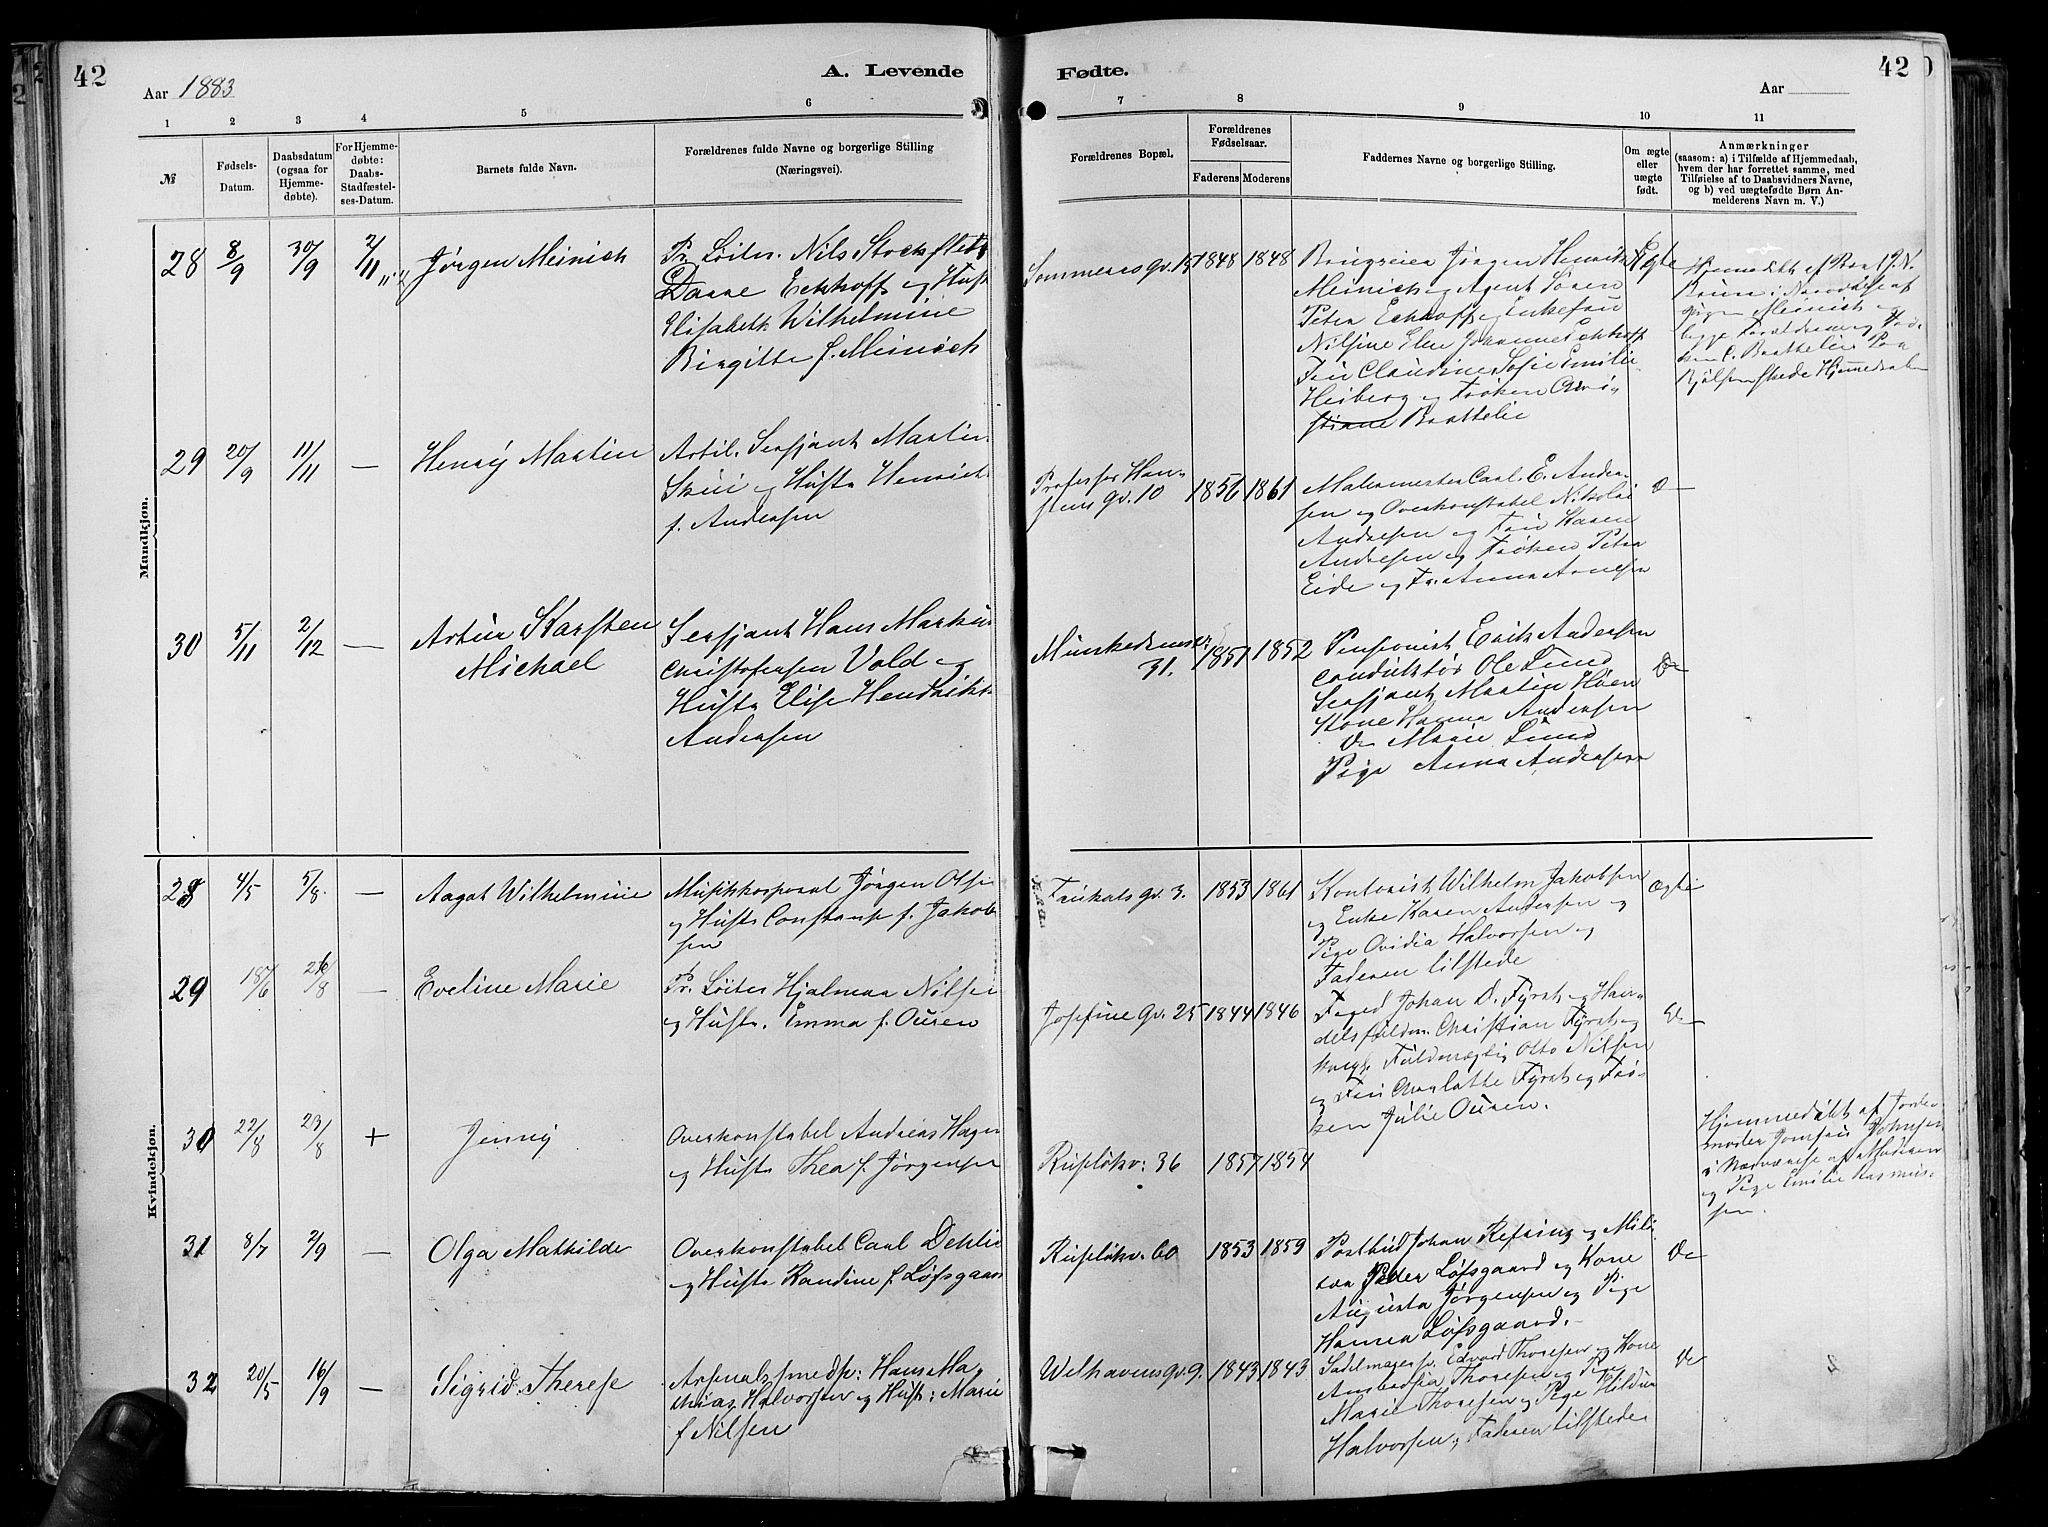 42
Aar 1883
A. Levende
Fødte.
42
Aar
1 2 3 4 5 6 7 8 9 10 11
№
Fødsels-
Datum.
Daabsdatum
(ogsaa for
Hjemme-
døbte).
For Hjemme-
døbte:
Daabs-
Stadfæstel-
ses-Datum.
Barnets fulde Navn.
Forældrenes fulde Navne og borgerlige Stilling
(Næringsvei).
Forældrenes Bopæl.
Forældrenes
Fødselsaar.
Faderens Moderens
Faddernes Navne og borgerlige Stilling.
Om ægte
eller
uægte
født.
Anmærkninger
(saasom: a) i Tilfælde af Hjemmedaab,
hvem der har forrettet samme, med
Tilføielse af to Daabsvidners Navne,
og b) ved uægtefødte Børn An-
melderens Navn m. V.)
Mandkjøn.
28 8/9 30/9 2/11 Jørgen Meinich
Pr. Løitn. Nils Stockfleth
Daare Eckhoff og Hust
Elisabeth Wilhelmine
Birgitte f. Meinich
Sommeres gv. 15 1848 1848
Brugseier Jørgen Henrik
Meinich og Agent Søren
Peter Eckhoff og Enkefru
Nilsine Elen Johanne Eckhoff
Fru Claudine Sofie Emilie
Heiberg og Frøken Chri-
stiane Bratteli
Ægte
Hjemmedøbt af
Bruun i Nærværelse af
Jørgen Meinich og
begge Forældrene og
Hjemmedaaben
29 20/9 11/11 — Henry Martin
Artil. Serfjant Martin
og Hustr Henriette
f. Andersen
Professor Han-
stens gv. 10 1856 1861
Malermester Carl. E. Ander-
sen og Overkonstabel Nikolai
Andresen og Fru Karen
Andresen og Frøken Petra
Eide og Fr. Anna Arnesen
D—
30 5/11 2/12 — Artur Karsten
Michael
Serfjant Hans Markus
Christofersen Vold og
Hustr Elise Hendrikke
Andersen
Munkedamsv.
31. 1851 1852
Pensionist Erik Andersen
Conduktør Ole Lund
Serfjant Martin Høen
Kone Hanna Andersen
Do Marie Lund
Pige Anna Andersen
Do
Kvindekjøn.
28 4/5 5/8 — Aagat Wilhelmine
Musikkorporal Jørgen Olsen
og Hustr Constanse f. Jakob
sen
Frukats gv. 3. 1853 1861
Kontorist Wilhelm Jakobsen
og Enke Karen Andersen og
Pige Ovidia Halvorsen og
Faderen tilstede
Ægte
29 18/6 26/8 — Eveline Marie
Pr. Løitn Hjalmar Nilsen
og Hustr. Emma f. Ousen
Josefine Gv. 25 1844 1846
Foged Johan D. Fyrst og Han-
delsfuldm. Christian Fyrst og
Fuldmægtig Otto Nilsen
og Fru Charlotte Fyrst og Frø-
ken Julie Ousen.
30 22/8 23/8 + Jenny
Overkonstabel Andreas Hagen
og Hustr Thea f. Jørgensen
Rupløkv: 36 1857 1854
Hjemmedøbt af Jorde-
moder Jomfru Johnsen
i Nærværelse af Moderen
og Pige Emilie Rasmus-
sen.
31 8/7 2/9 — Olga Mathilde
Overkonstabel Carl Dehlie
og Hustr Randine f. Løfsgaard
Rupløkv. 60 1853 1859
Postbud Johan Refsing og
Peder Løfsgaard og Kone
Augusta Jørgensen og Pige
Hanna Løfsgaard.
Do
32 20/5 16/9 — Sigrid Therese
Arsenalsmedsv: Hans Ma-
thias Halvorsen og Hust: Marie
f Nilsen
Welhavens gv. 9. 1843 1843
Sadelmagersv. Edvard Thoresen og Kone
Ambrosia Thoresen og Pige
Marie Thoresen og Pige Hildur
Halvorsen, Faderen tilstede
Do